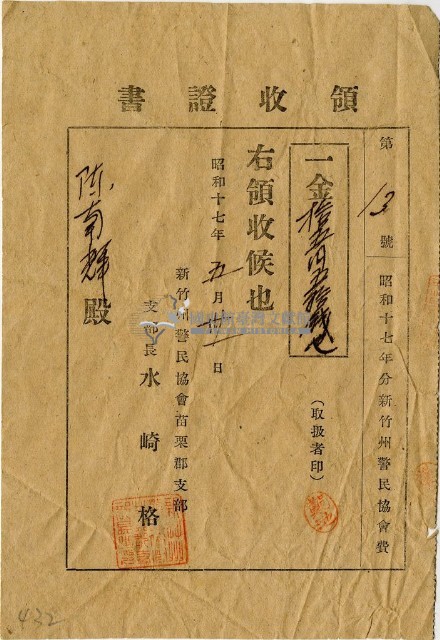 領收證書
第 13 號 昭和十七年分新竹州警民協會費
一金拾五円五拾錢也
(取扱者印)
右領收候也
昭和十七年五月廿五日
新竹州警民協會苗栗郡支部
支部長 水崎格
陳南輝殿
432